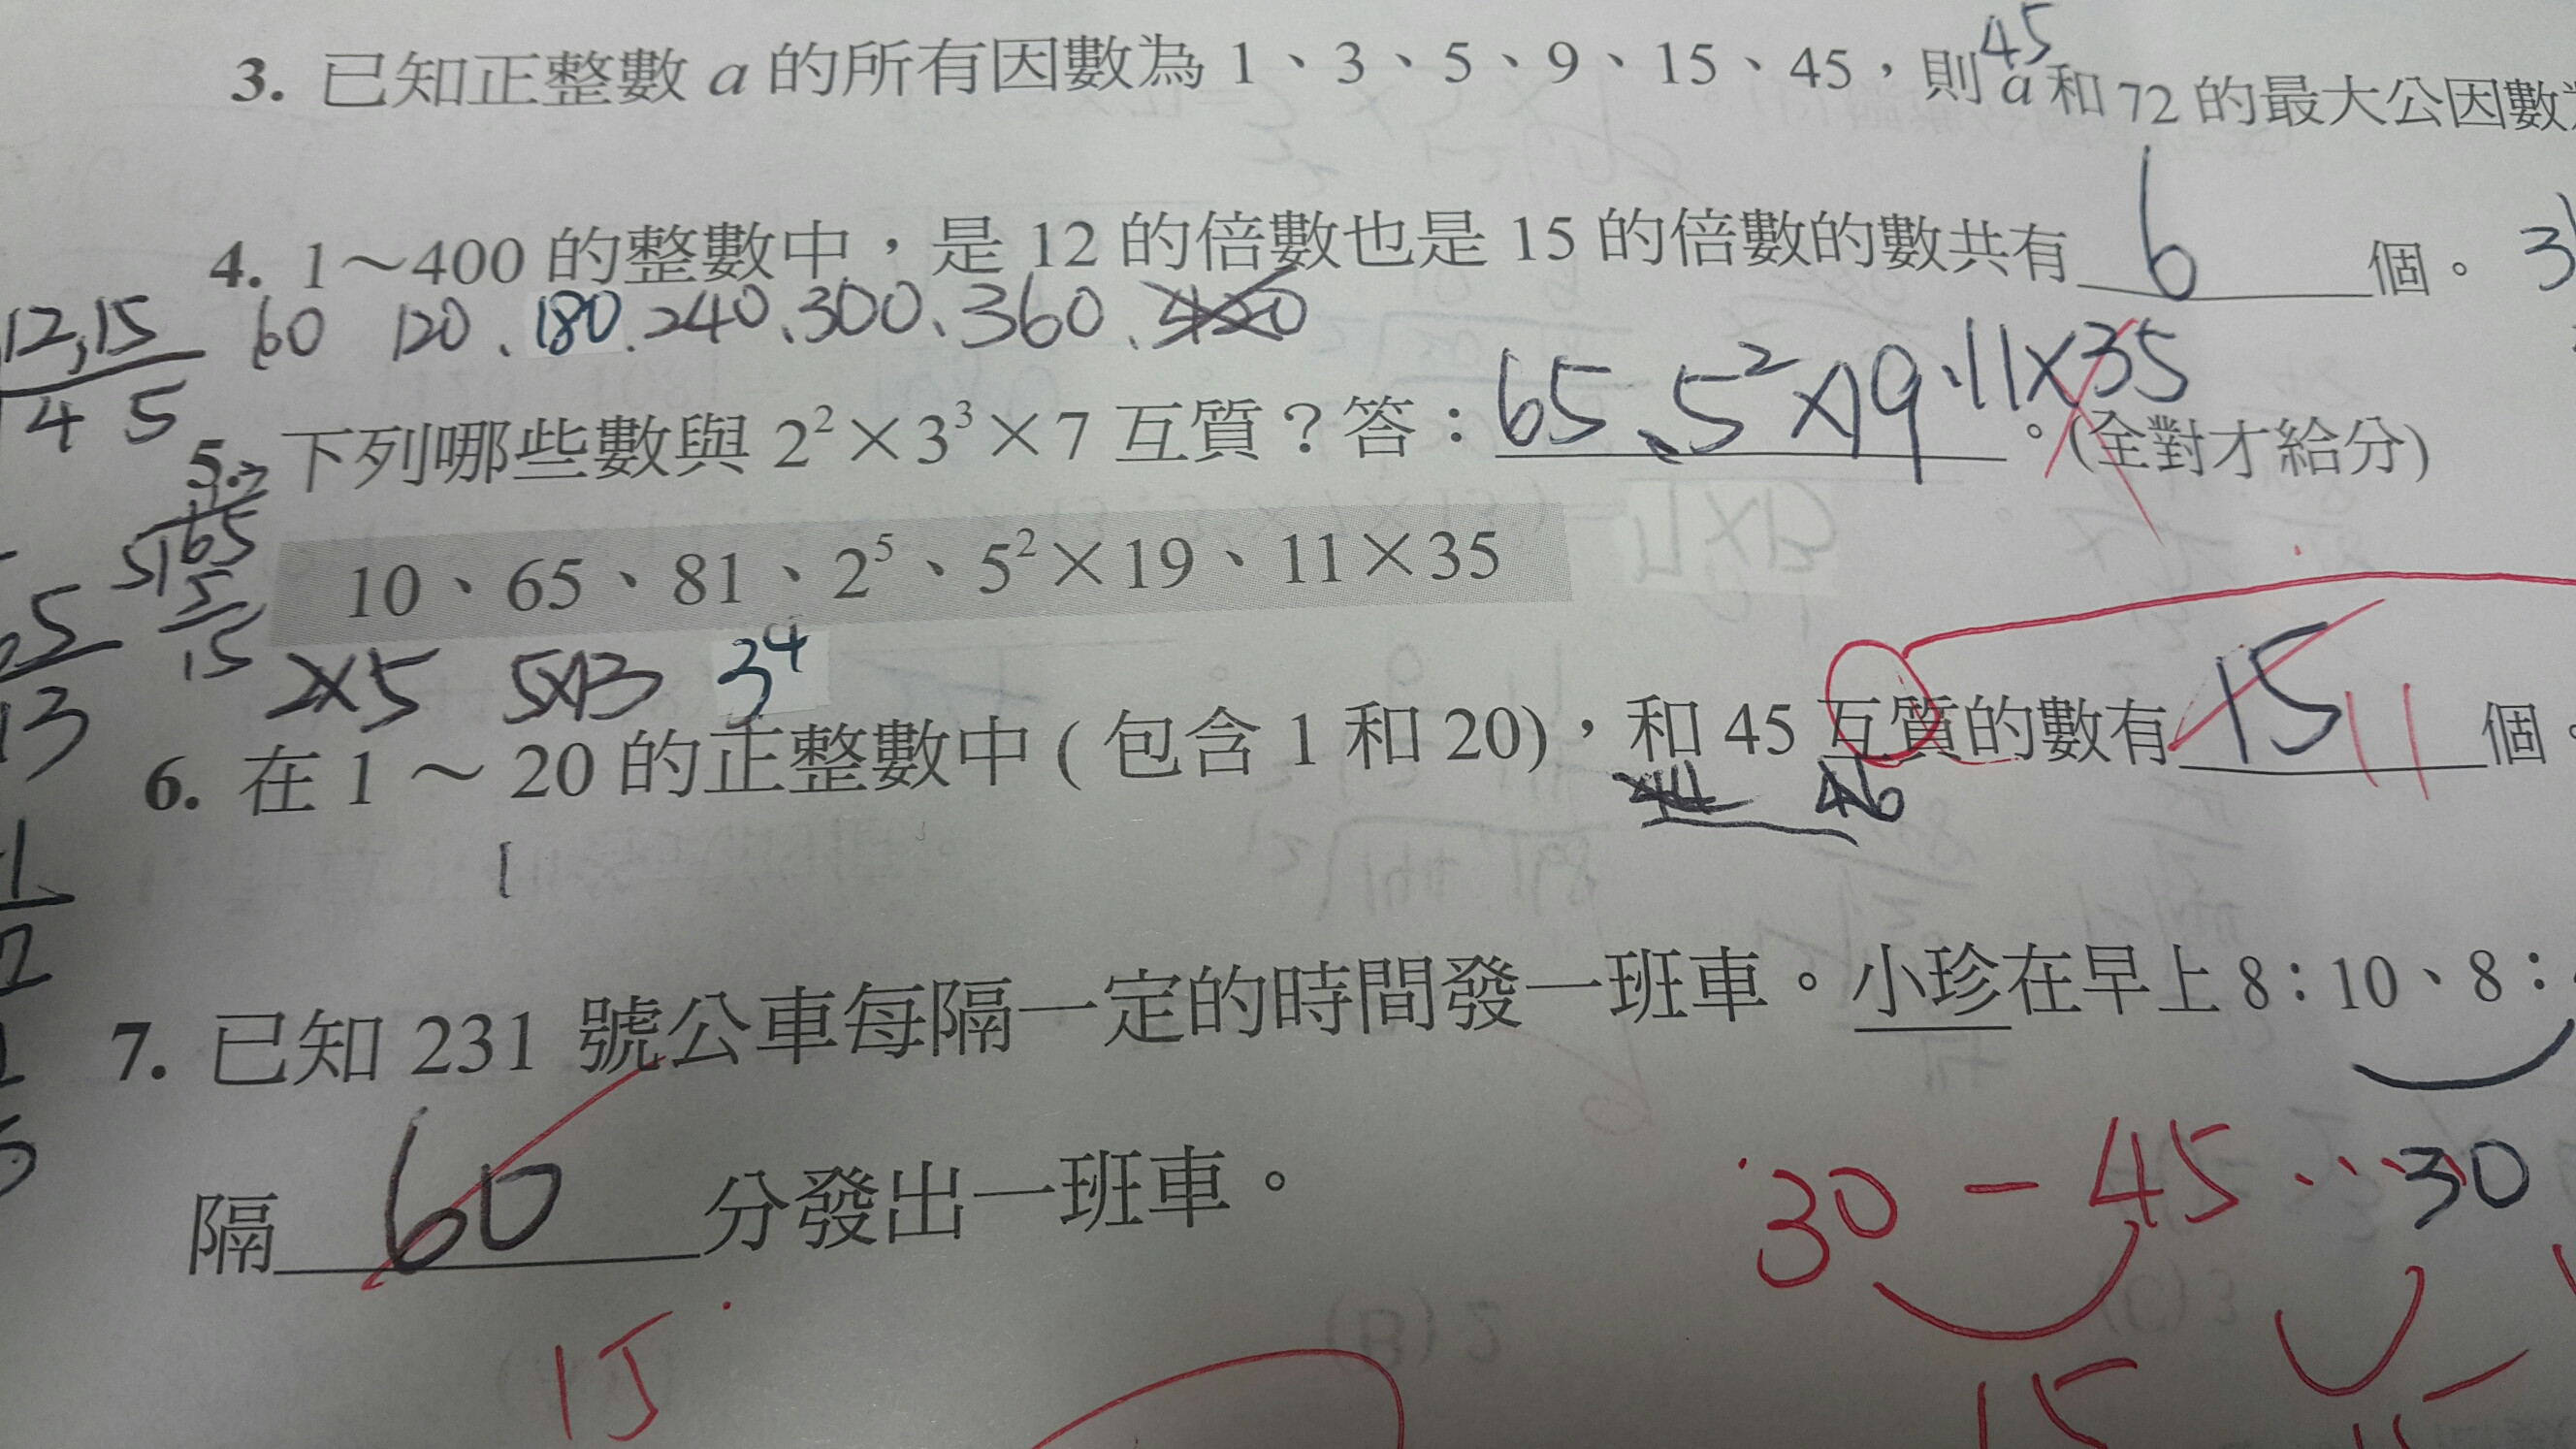 45
3. 已知正整數 a 的所有因數為 1、3、5、9、15、45，則 a 和 72 的最大公因數
4. 1～400 的整數中，是 12 的倍數也是 15 的倍數的數共有 6 個。 3
12,15
4 5
60 120、180、240、300、360、420
5. 下列哪些數與 2²×3³×7 互質？答：65、5²×19、11×35。(全對才給分)
10、65、81、2⁵、5²×19、11×35
5 65
15
13
2×5 5×13 3⁴
6. 在 1～20 的正整數中 ( 包含 1 和 20)，和 45 互質的數有 15 11 個。
44 46
1
7. 已知 231 號公車每隔一定的時間發一班車。小珍在早上 8：10、8：
隔 60 分發出一班車。
15
30 - 45 30
15